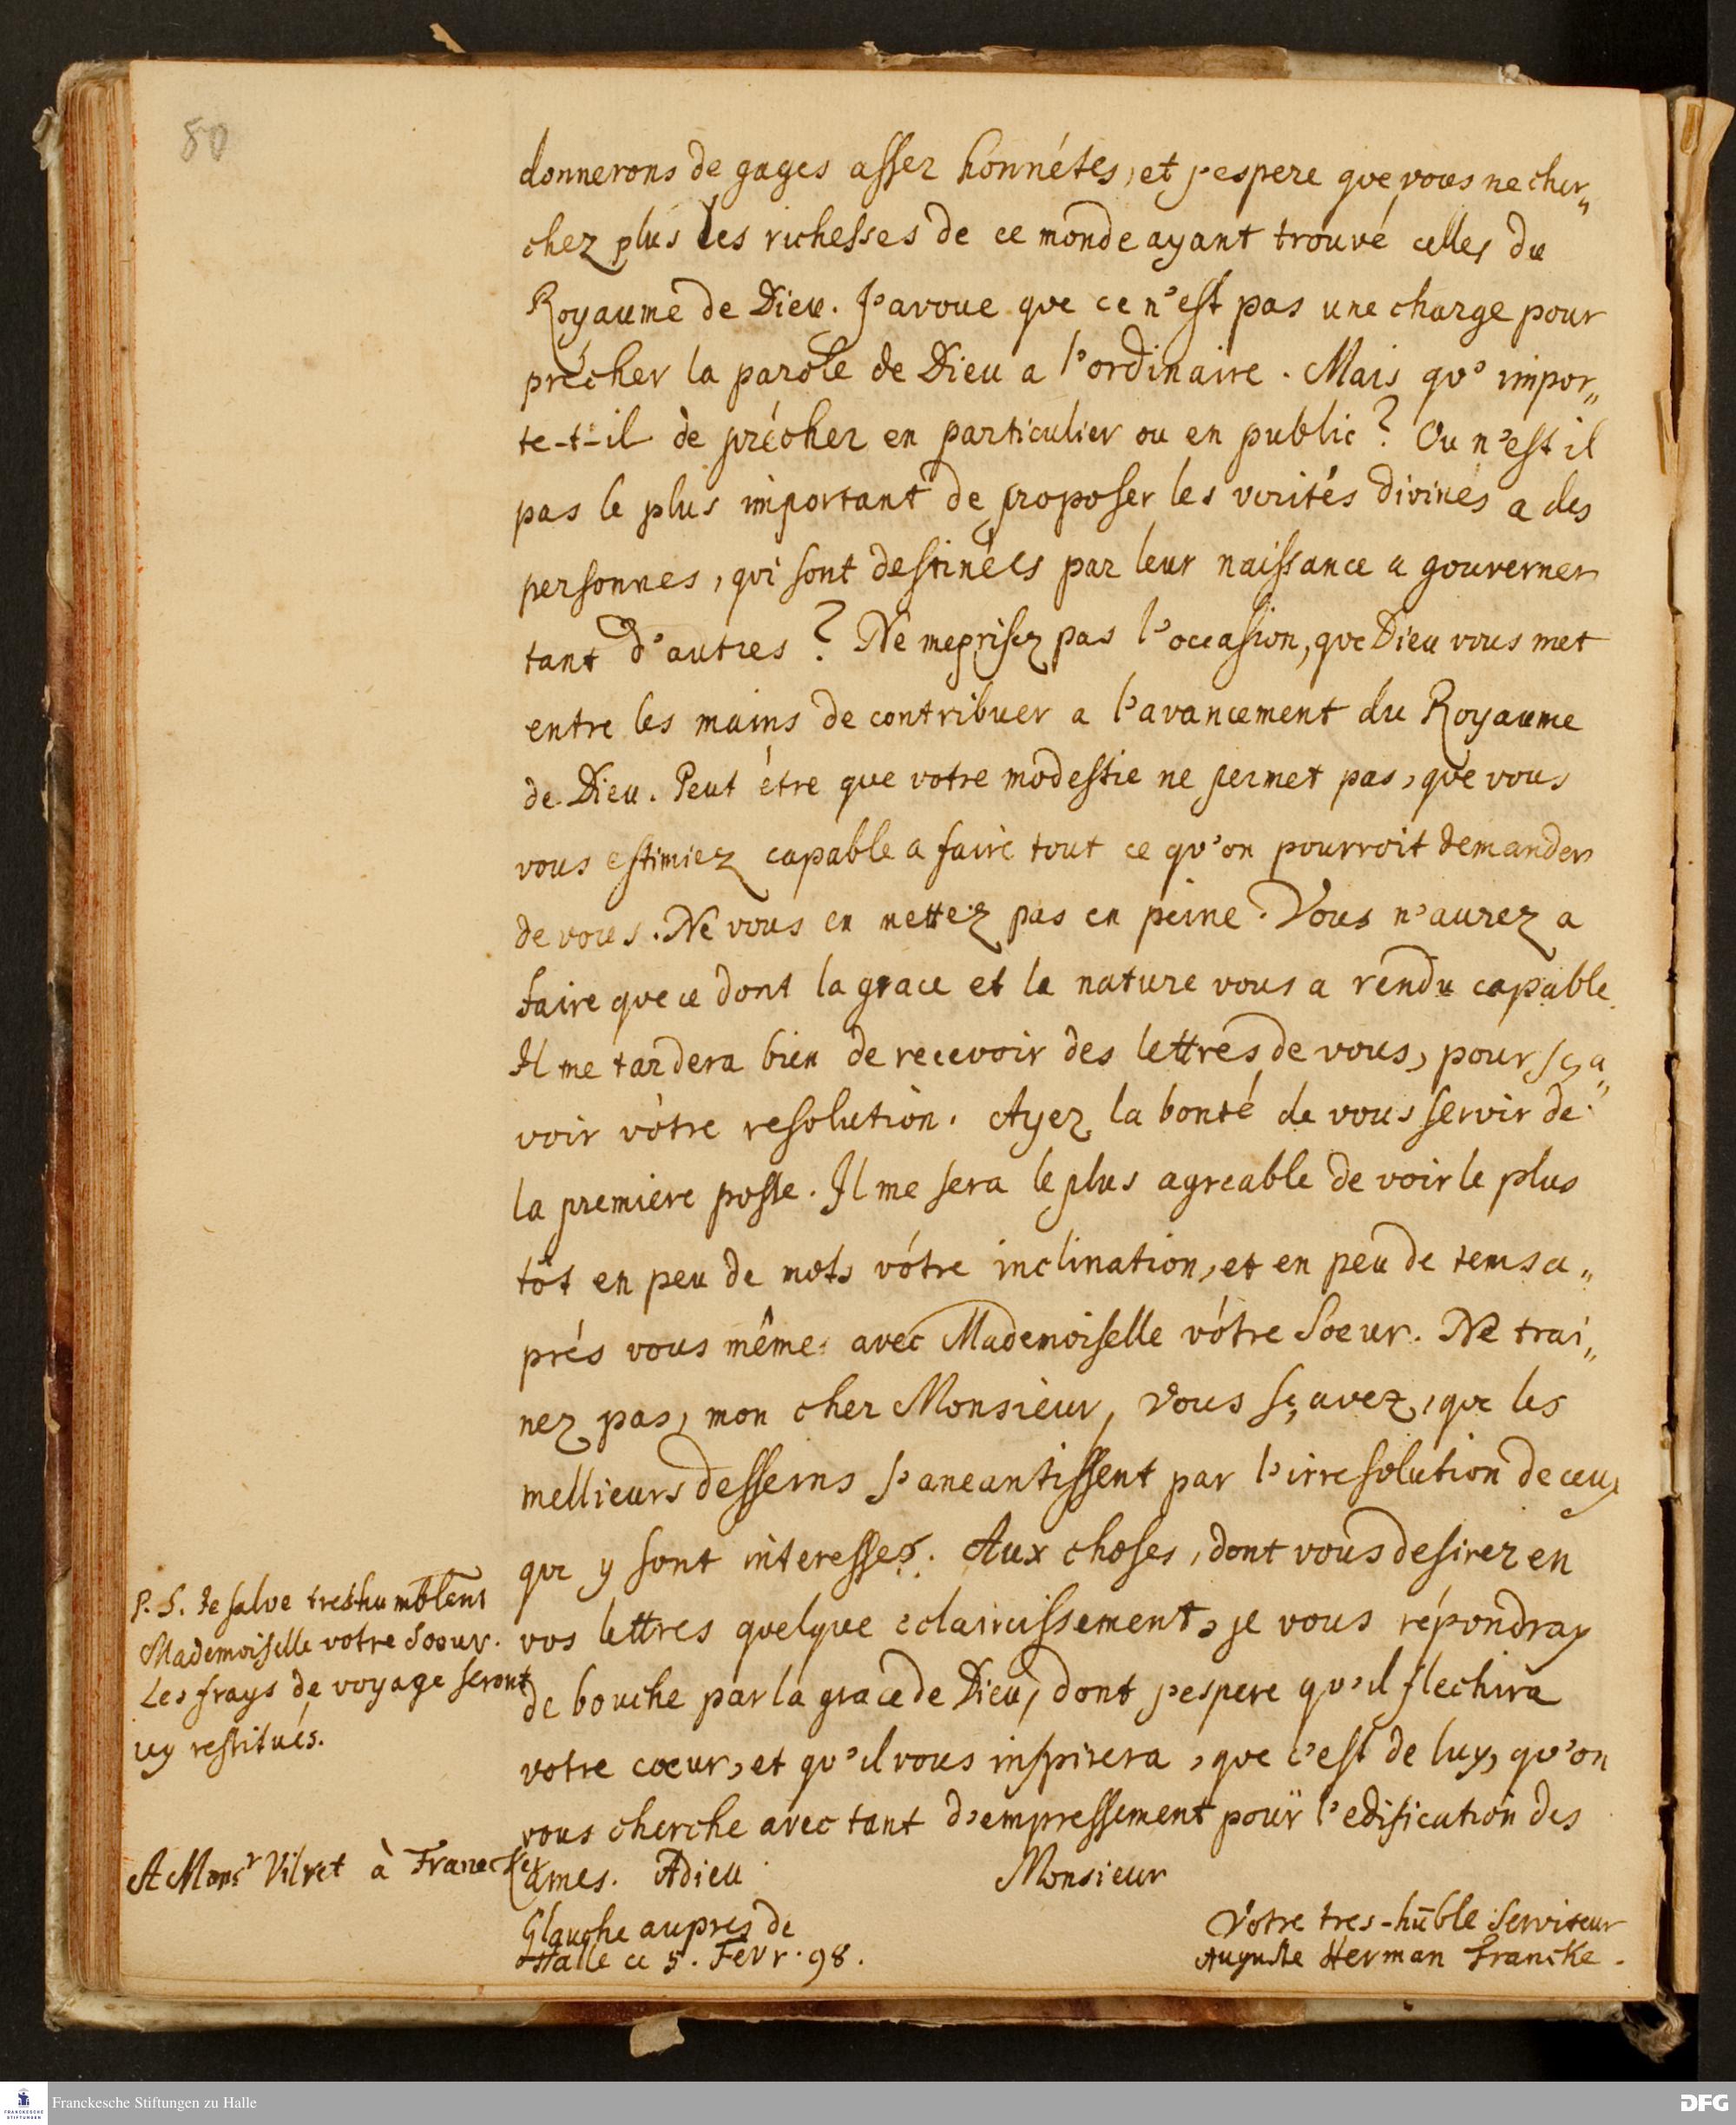 80
donnerons de gages assez honnétes, et j'espere que vous ne cher„
chez plus les richesses de ce monde ayant trouvé celles du
Royaume de Dieu. J'avoue que ce n'est pas une charge pour
précher la parole de Dieu a l'ordinaire. Mais qu' impor„
te-t-il de précher en particulier ou en public? Ou n'est il
pas le plus important de proposer les verités divines a des
personnes, qui sont destinées par leur naissance a gouverner
tant d'autres? Ne meprisez pas l'occasion, que Dieu vous met
entre les mains de contribuer a l'avancement du Royaume
de Dieu. Peut étre que votre modestie ne permet pas, que vous
vous estimiez capable a faire tout ce qu'on pourroit demander
de vous. Ne vous en mettez pas en peine. Vous n'aurez a
faire que ce dont la grace et la nature vous a rendu capable.
Il me tardera bien de recevoir des lettres de vous, pour sça„
voir vòtre resolution. Ayez la bonté de vous servir de
la premiere poste. Il me sera le plus agreable de voir le plus
tôt en peu de mots vótre inclination, et en peu de tems a„
prés vous même avec Mademoiselle vótre Soeur. Ne trai„
nez pas, mon cher Monsieur, vous sçavez, que les
mellieurs desseins s'aneantissent par l'irresolution de ceux
qui y sont interessez. Aux choses, dont vous desirez en
vos lettres quelque eclaircissement, je vous répondray
de bouche par la grace de Dieu, dont j'espere qu'il flechira
votre coeur, et qu'il vous inspirera, que c'est de luy, qu'on
vous cherche avec tant d'empressement pour l'edification des
ames. Adieu
Monsieur
Glauche aupres de
Halle ce 5. Fevr. 98.
Votre tres-hūble Serviteur
Auguste Herman Francke.
P. S. Je salue treshumblemt
Mademoiselle votre Soeur.
Les frays de voyage seront
icy restitués.
A Monsr Vilret à Franecker
Franckesche Stiftungen zu Halle
FRANCKESCHE STIFTUNGEN
DFG